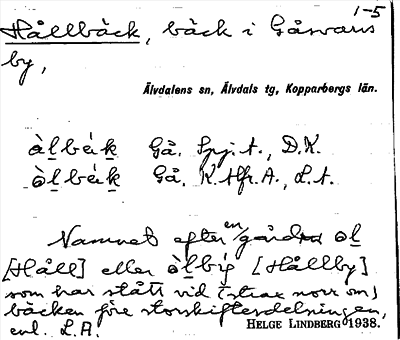 1-5
Hållbäck, bäck i Gåsvars
by,
Älvdalens sn, Älvdals tg, Kopparbergs län.
Gå. Spj.A., D.K.
Gå. L.A.
Namnet efter en gård ol
[Håll] eller òlbig [Hållby]
som har stått vid (strax norr om)
bäcken före storskiftesdelningen,
enl. L.A.
HELGE LINDBERG 1938.